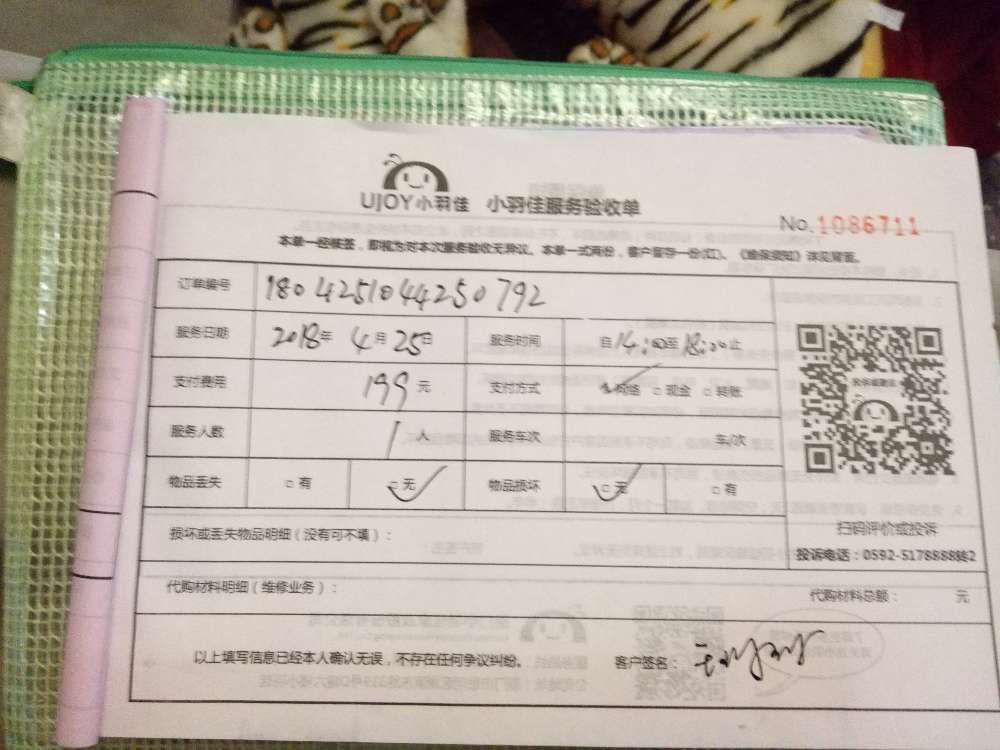 UJOY小羽佳 小羽佳服务验收单
No.1086711
本单一经核签，即视为对本次服务验收无异议。本单一式两份，客户留存一份(红)。《维保须知》详见背面。
订单编号 18042510444250792
服务日期 2018年 4月 25日 服务时间 自14:00至18:00止
支付费用 199元 支付方式 □网络 □现金 □转账
服务人数 1人 服务车次 车/次
物品丢失 □有 □无 物品损坏 □无 □有
扫码评价或投诉
投诉电话：0592-5178888转2
损坏或丢失物品明细（没有可不填）：
代购材料明细（维修业务）： 代购材料总额： 元
以上填写信息已经本人确认无误，不存在任何争议纠纷。 客户签名：